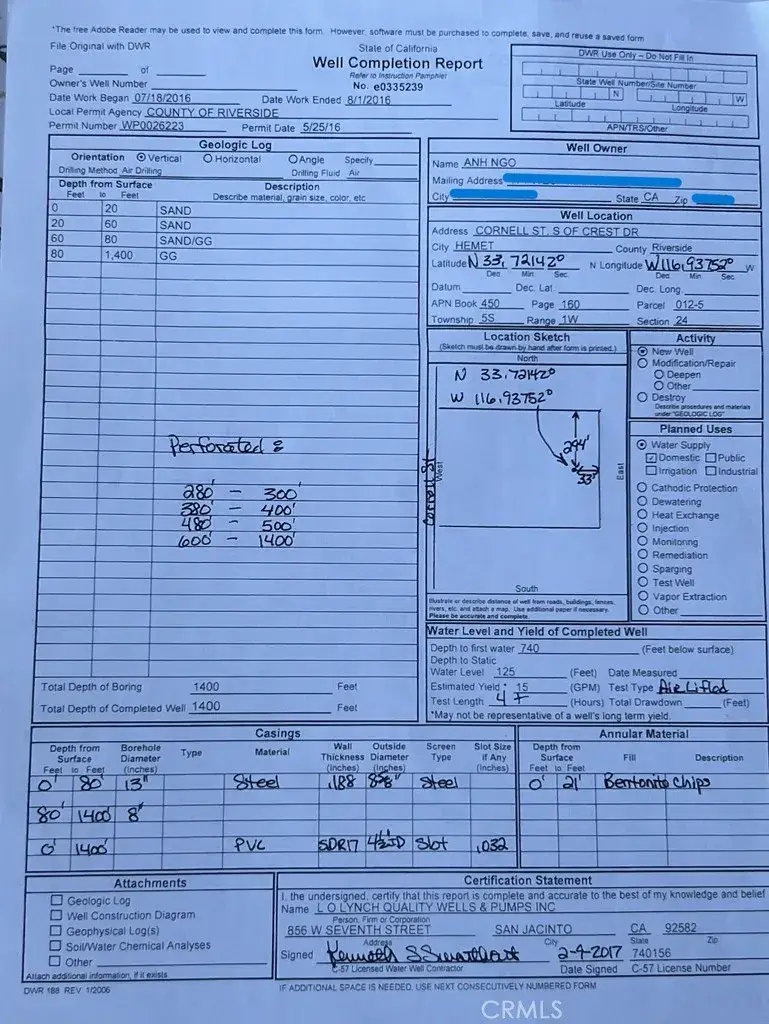 *The free Adobe Reader may be used to view and complete this form. However, software must be purchased to complete, save, and reuse a saved form
File Original with DWR
State of California
Well Completion Report
Refer to Instruction Pamphlet
No. e0335239
Page of
Owner's Well Number
Date Work Began 07/18/2016 Date Work Ended 8/1/2016
Local Permit Agency COUNTY OF RIVERSIDE
Permit Number WP0026223 Permit Date 5/25/16
DWR Use Only – Do Not Fill In
State Well Number/Site Number
N W
Latitude Longitude
APN/TRS/Other
Geologic Log
Orientation Vertical Horizontal Angle Specify
Drilling Method Air Drilling Drilling Fluid Air
Depth from Surface Description
Feet to Feet Describe material, grain size, color, etc
0 20 SAND
20 60 SAND
60 80 SAND/GG
80 1,400 GG
Perforated :
280' – 300'
380' – 400'
480' – 500'
600' – 1400'
Total Depth of Boring 1400 Feet
Total Depth of Completed Well 1400 Feet
Well Owner
Name ANH NGO
Mailing Address
City State CA Zip
Well Location
Address CORNELL ST, S OF CREST DR
City HEMET County Riverside
Latitude N 33.72142° N Longitude W116.93752° W
Dec. Min. Sec. Dec. Min. Sec.
Datum Dec. Lat. Dec. Long.
APN Book 450 Page 160 Parcel 012-5
Township 5S Range 1W Section 24
Location Sketch
(Sketch must be drawn by hand after form is printed.)
North
N 33.72142°
W 116.93752°
294'
33'
Cornell St
West
East
South
Illustrate or describe distance of well from roads, buildings, fences, rivers, etc. and attach a map. Use additional paper if necessary.
Please be accurate and complete.
Activity
New Well
Modification/Repair
Deepen
Other
Destroy
Describe procedures and materials under "GEOLOGIC LOG"
Planned Uses
Water Supply
Domestic Public
Irrigation Industrial
Cathodic Protection
Dewatering
Heat Exchange
Injection
Monitoring
Remediation
Sparging
Test Well
Vapor Extraction
Other
Water Level and Yield of Completed Well
Depth to first water 740 (Feet below surface)
Depth to Static
Water Level 125 (Feet) Date Measured
Estimated Yield * 15 (GPM) Test Type Air Lifted
Test Length 4 + (Hours) Total Drawdown (Feet)
*May not be representative of a well's long term yield.
Casings
Depth from Surface Feet to Feet Borehole Diameter (Inches) Type Material Wall Thickness (Inches) Outside Diameter (Inches) Screen Type Slot Size if Any (Inches)
0' 80' 13" Steel .188 Steel
80' 1400' 8"
0' 1400' PVC SDR17 Slot .032
Annular Material
Depth from Surface Feet to Feet Fill Description
0' 21' Bentonite Chips
Attachments
Geologic Log
Well Construction Diagram
Geophysical Log(s)
Soil/Water Chemical Analyses
Other
Attach additional information, if it exists.
Certification Statement
I, the undersigned, certify that this report is complete and accurate to the best of my knowledge and belief
Name L O LYNCH QUALITY WELLS & PUMPS INC
Person, Firm or Corporation
856 W SEVENTH STREET SAN JACINTO CA 92582
Address City State Zip
Signed 2-4-2017 740156
C-57 Licensed Water Well Contractor Date Signed C-57 License Number
DWR 188 REV. 1/2006 IF ADDITIONAL SPACE IS NEEDED, USE NEXT CONSECUTIVELY NUMBERED FORM
CRMLS